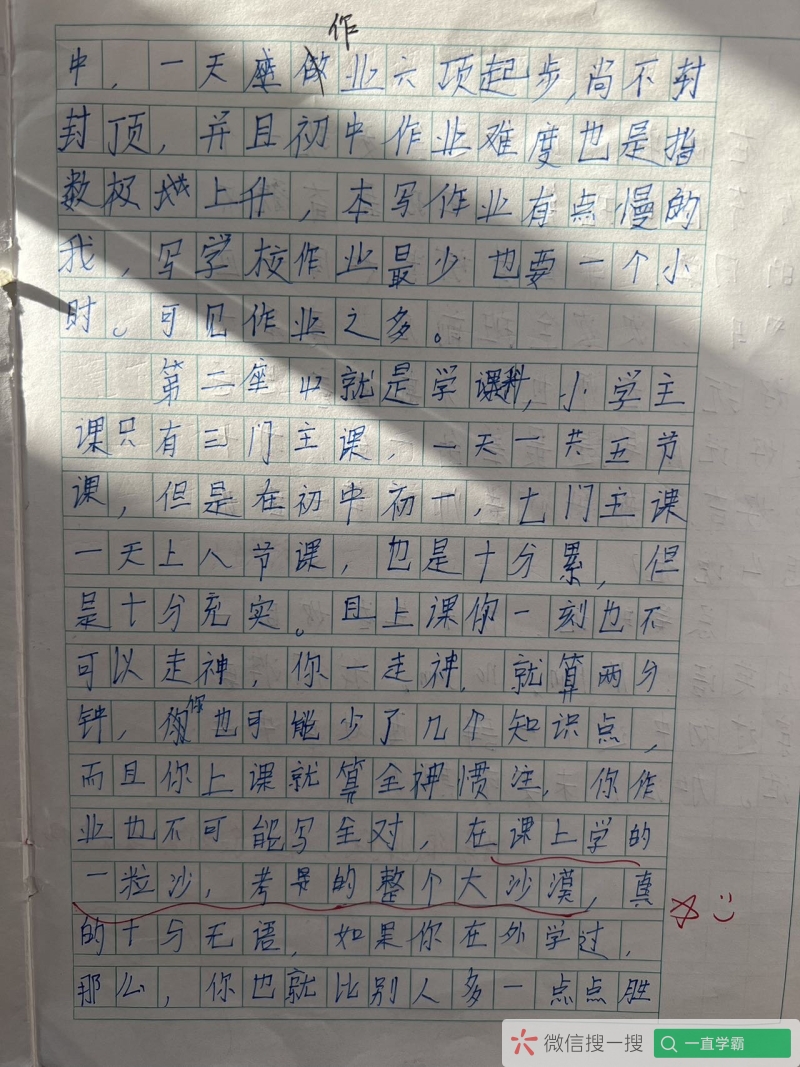 作
中，一天座做业六项起步，尚不封
封顶，并且初中作业难度也是指
数极地上升，本写作业有点慢的
我，写学校作业最少也要一个小
时。可见作业之多。
第二座山就是学课料，小学主
课只有三门主课，一天一共五节
课，但是在初中初一，七门主课
一天上八节课，也是十分累，但
是十分充实。且上课你一刻也不
可以走神，你一走神，就算两分
钟，你也可能少了几个知识点，
而且你上课就算全神惯注，你作
业也不可能写全对，在课上学的
一粒沙，考是的整个大沙漠，真
的十分无语，如果你在外学过，
那么，你也就比别人多一点点胜
微信搜一搜
一直学霸